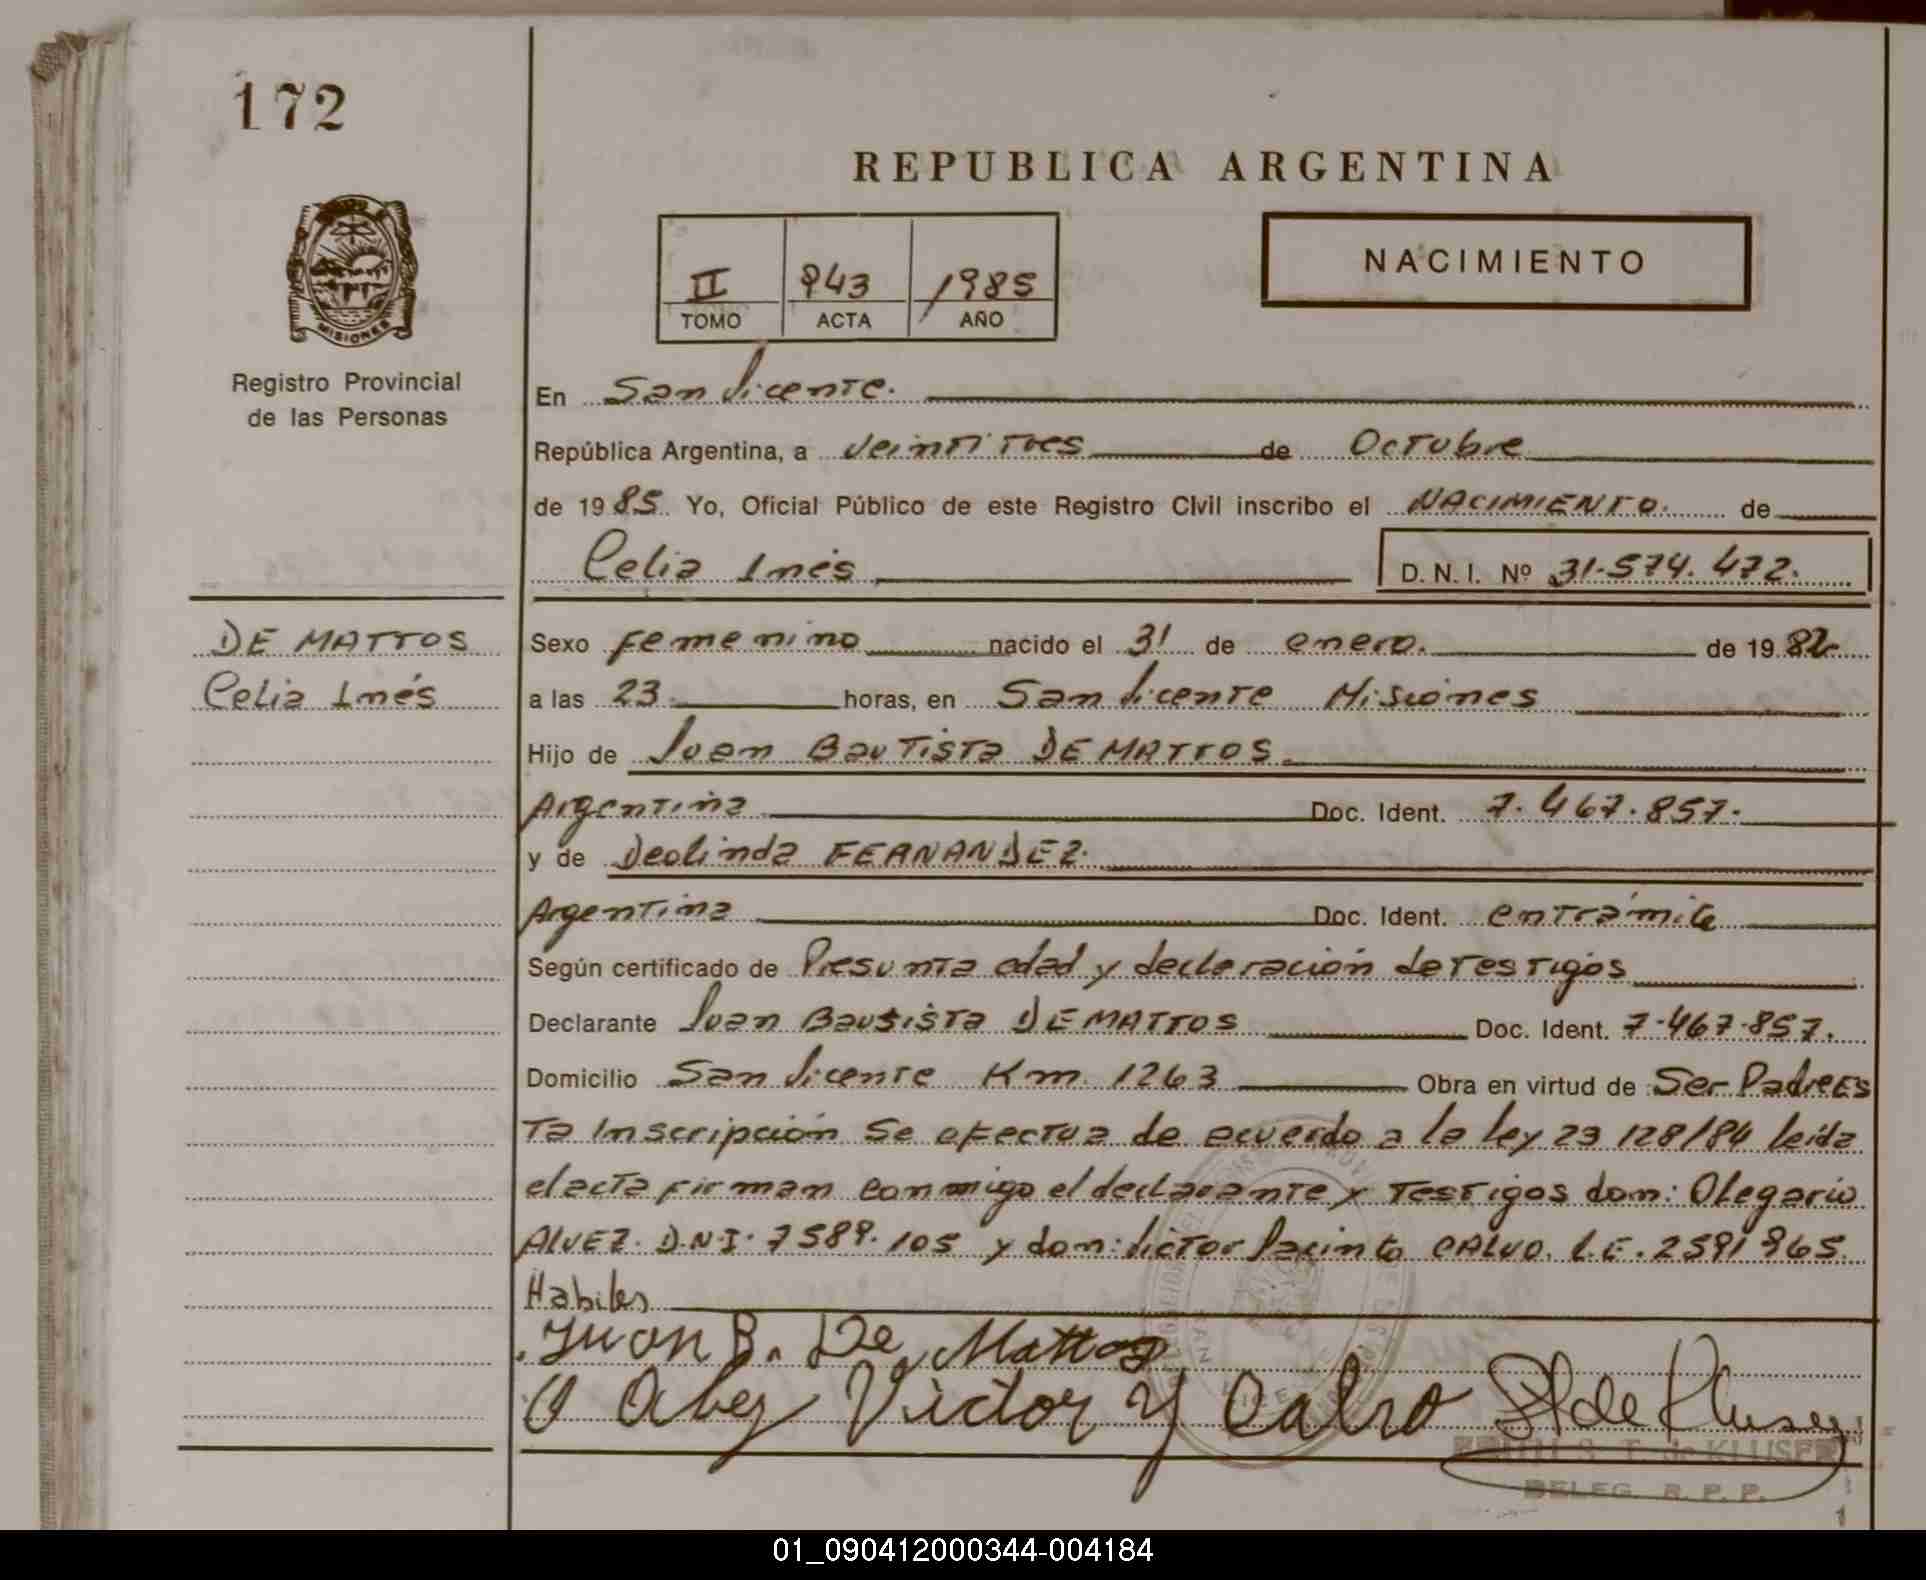 172
REPUBLICA ARGENTINA
II 943 1985
TOMO ACTA AÑO
NACIMIENTO
MISIONES
Registro Provincial
de las Personas
En San Vicente.
República Argentina, a veintitres de Octubre
de 1985 Yo, Oficial Público de este Registro Civil inscribo el NACIMIENTO. de
Celia Inés D. N. I. Nº 31.574.472.
DE MATTOS
Celia Inés
Sexo Femenino nacido el 31 de enero. de 1982
a las 23 horas, en San Vicente Misiones
Hijo de Juan Bautista DE MATTOS
Argentina Doc. Ident. 7.467.857.
y de Deolinda FERNANDEZ.
Argentina Doc. Ident. en trámite
Según certificado de Presunta edad y declaración de Testigos
Declarante Juan Bautista DE MATTOS Doc. Ident. 7.467.857.
Domicilio San Vicente Km. 1263 Obra en virtud de Ser Padre Es
ta Inscripción Se efectua de acuerdo a la ley 23 128/84 leída
el acta firman conmigo el declarante y Testigos don: Olegario
ALVEZ. D.N.I. 7589.105 y don: Victor Jacinto CALVO. L.E. 2591965
Habiles
Juan B. De Mattos
O Alvez Victor Y Calvo
S. T. de KLUSER
DELEG. R. P. P.
1
01_090412000344-004184